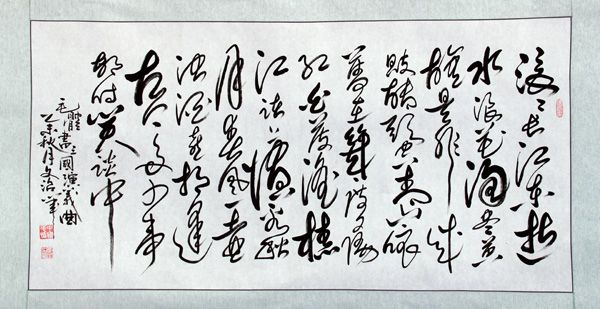 滚〻长江东逝
水浪花淘尽英
雄是非成
败转头空青山依
舊在几度夕阳
红白发渔樵
江渚上惯看秋
月春风一壶
浊酒喜相逢
古今多少事
都付笑谈中
毛體書三國演義曲
乙未秋月文治筆